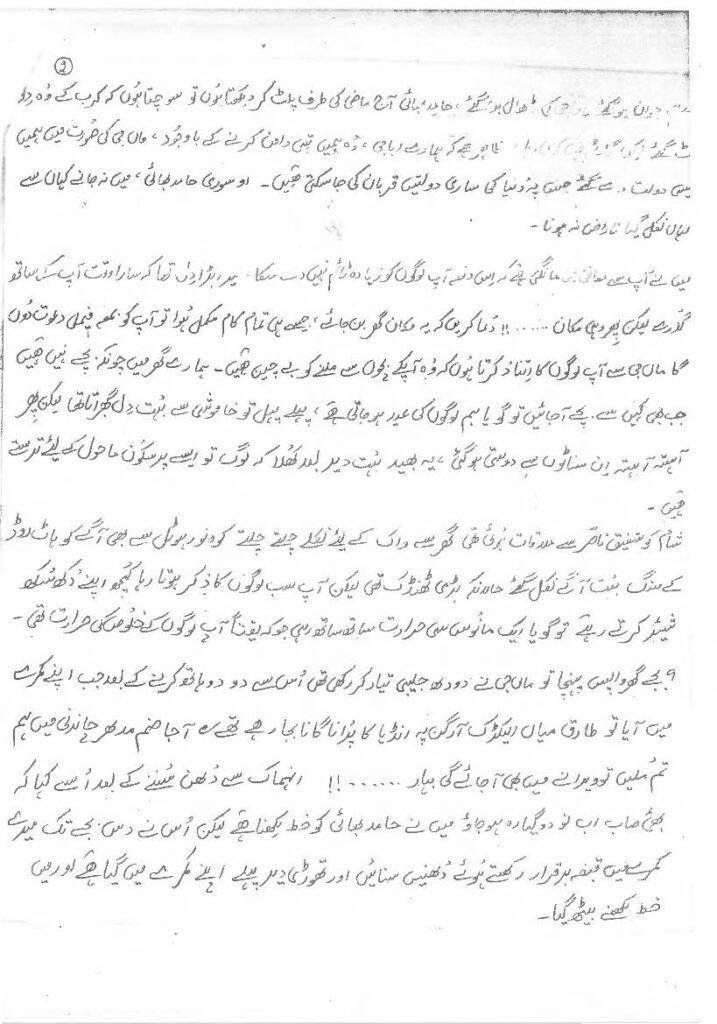 ۲
جوان ہو گئے کی ڈھال ہو گئے، حامد بھائی آج ماضی کی طرف پلٹ کر دیکھتا ہوں تو سوچتا ہوں کہ کرب کے وہ دن
گئے ظاہر ہے کہ ہمارے اباجی، وہ ہمیں تہی دامن کرنے کے باوجود، ماں جی کی صورت میں ہمیں
دولت دے گئے جس پہ دُنیا کی ساری دولتیں قربان کی جا سکتی ہیں۔ او سوری حامد بھائی، میں نہ جانے کہاں سے
کہاں نکل گیا ناراض نہ ہونا۔
میں نے آپ سے معافی بھی مانگنی ہے کہ اس دفعہ آپ لوگوں کو زیادہ ٹائم نہیں دے سکا۔ میرا بڑا دل تھا کہ سارا وقت آپ کے ساتھ
گُذرے لیکن پھر وہی مکان ......!! دُعا کریں کہ یہ مکان گھر بن جائے، جیسے ہی تمام کام مکمل ہُوا تو آپ کو بمعہ فیملی دعوت دُوں
گا ماں جی سے آپ لوگوں کا اِتنا ذکر کرتا ہُوں کہ وُہ آپکے بچوں سے ملنے کو بے چین ہیں۔ ہمارے گھر میں چونکہ بچے نہیں ہیں
جب بھی کہیں سے بچے آجائیں تو گویا ہم لوگوں کی عید ہو جاتی ہے، پہلے پہل تو خاموشی سے بُہت دِل گھبراتا تھا لیکن پھر
آہستہ آہستہ اِن سناٹوں سے دوستی ہو گئی، یہ بھید بُہت دیر بعد کُھلا کہ لوگ تو ایسے پرسکُون ماحول کے لیٔے ترستے
ہیں۔
شام کو شفیق ناصر سے ملاقات ہُوئی تھی گھر سے واک کے لیٔے نکلے چلتے چلتے کوہ نور ہوٹل سے بھی آگے کو ہاٹ روڈ
کے سنگ بُہت آگے نکل گئے حالانکہ بڑی ٹھنڈک تھی لیکن آپ سب لوگوں کا ذکر ہوتا رہا کُچھ اپنے دُکھ سُکھ
شیئر کرتے رہے تو گویا ایک مانُوس سی حرارت ساتھ ساتھ رہی جو کہ یقیناً آپ لوگوں کے خلُوص کی حرارت تھی۔
۹ بجے گھر واپس پہنچا تو ماں جی نے دودھ جلیبی تیار کر رکھی تھی اُس سے دو دو ہاتھ کرنے کے بعد جب اپنے کمرے
میں آیا تو طارق میاں الیکڑک آرگن پہ انڈیا کا پُرانا گانا بجا رہے تھے؎ آجا صنم مدھر چاندنی میں ہم
تُم مُلیں تو ویرانے میں بھی آجائے گی بہار ......!! انہماک سے دُھن سُننے کے بعد اُسے کہا کہ
بھئی صاب اب نو دو گیارہ ہو جاؤ میں نے حامد بھائی کو خط لِکھنا ہے لیکن اُس نے دس بجے تک میرے
کمرے میں قبضہ برقرار رکھتے ہُوئے دُھنیں سنائیں اور تھوڑی دیر پہلے اپنے کمرے میں گیا ہے اور میں
خط لکھنے بیٹھ گیا۔